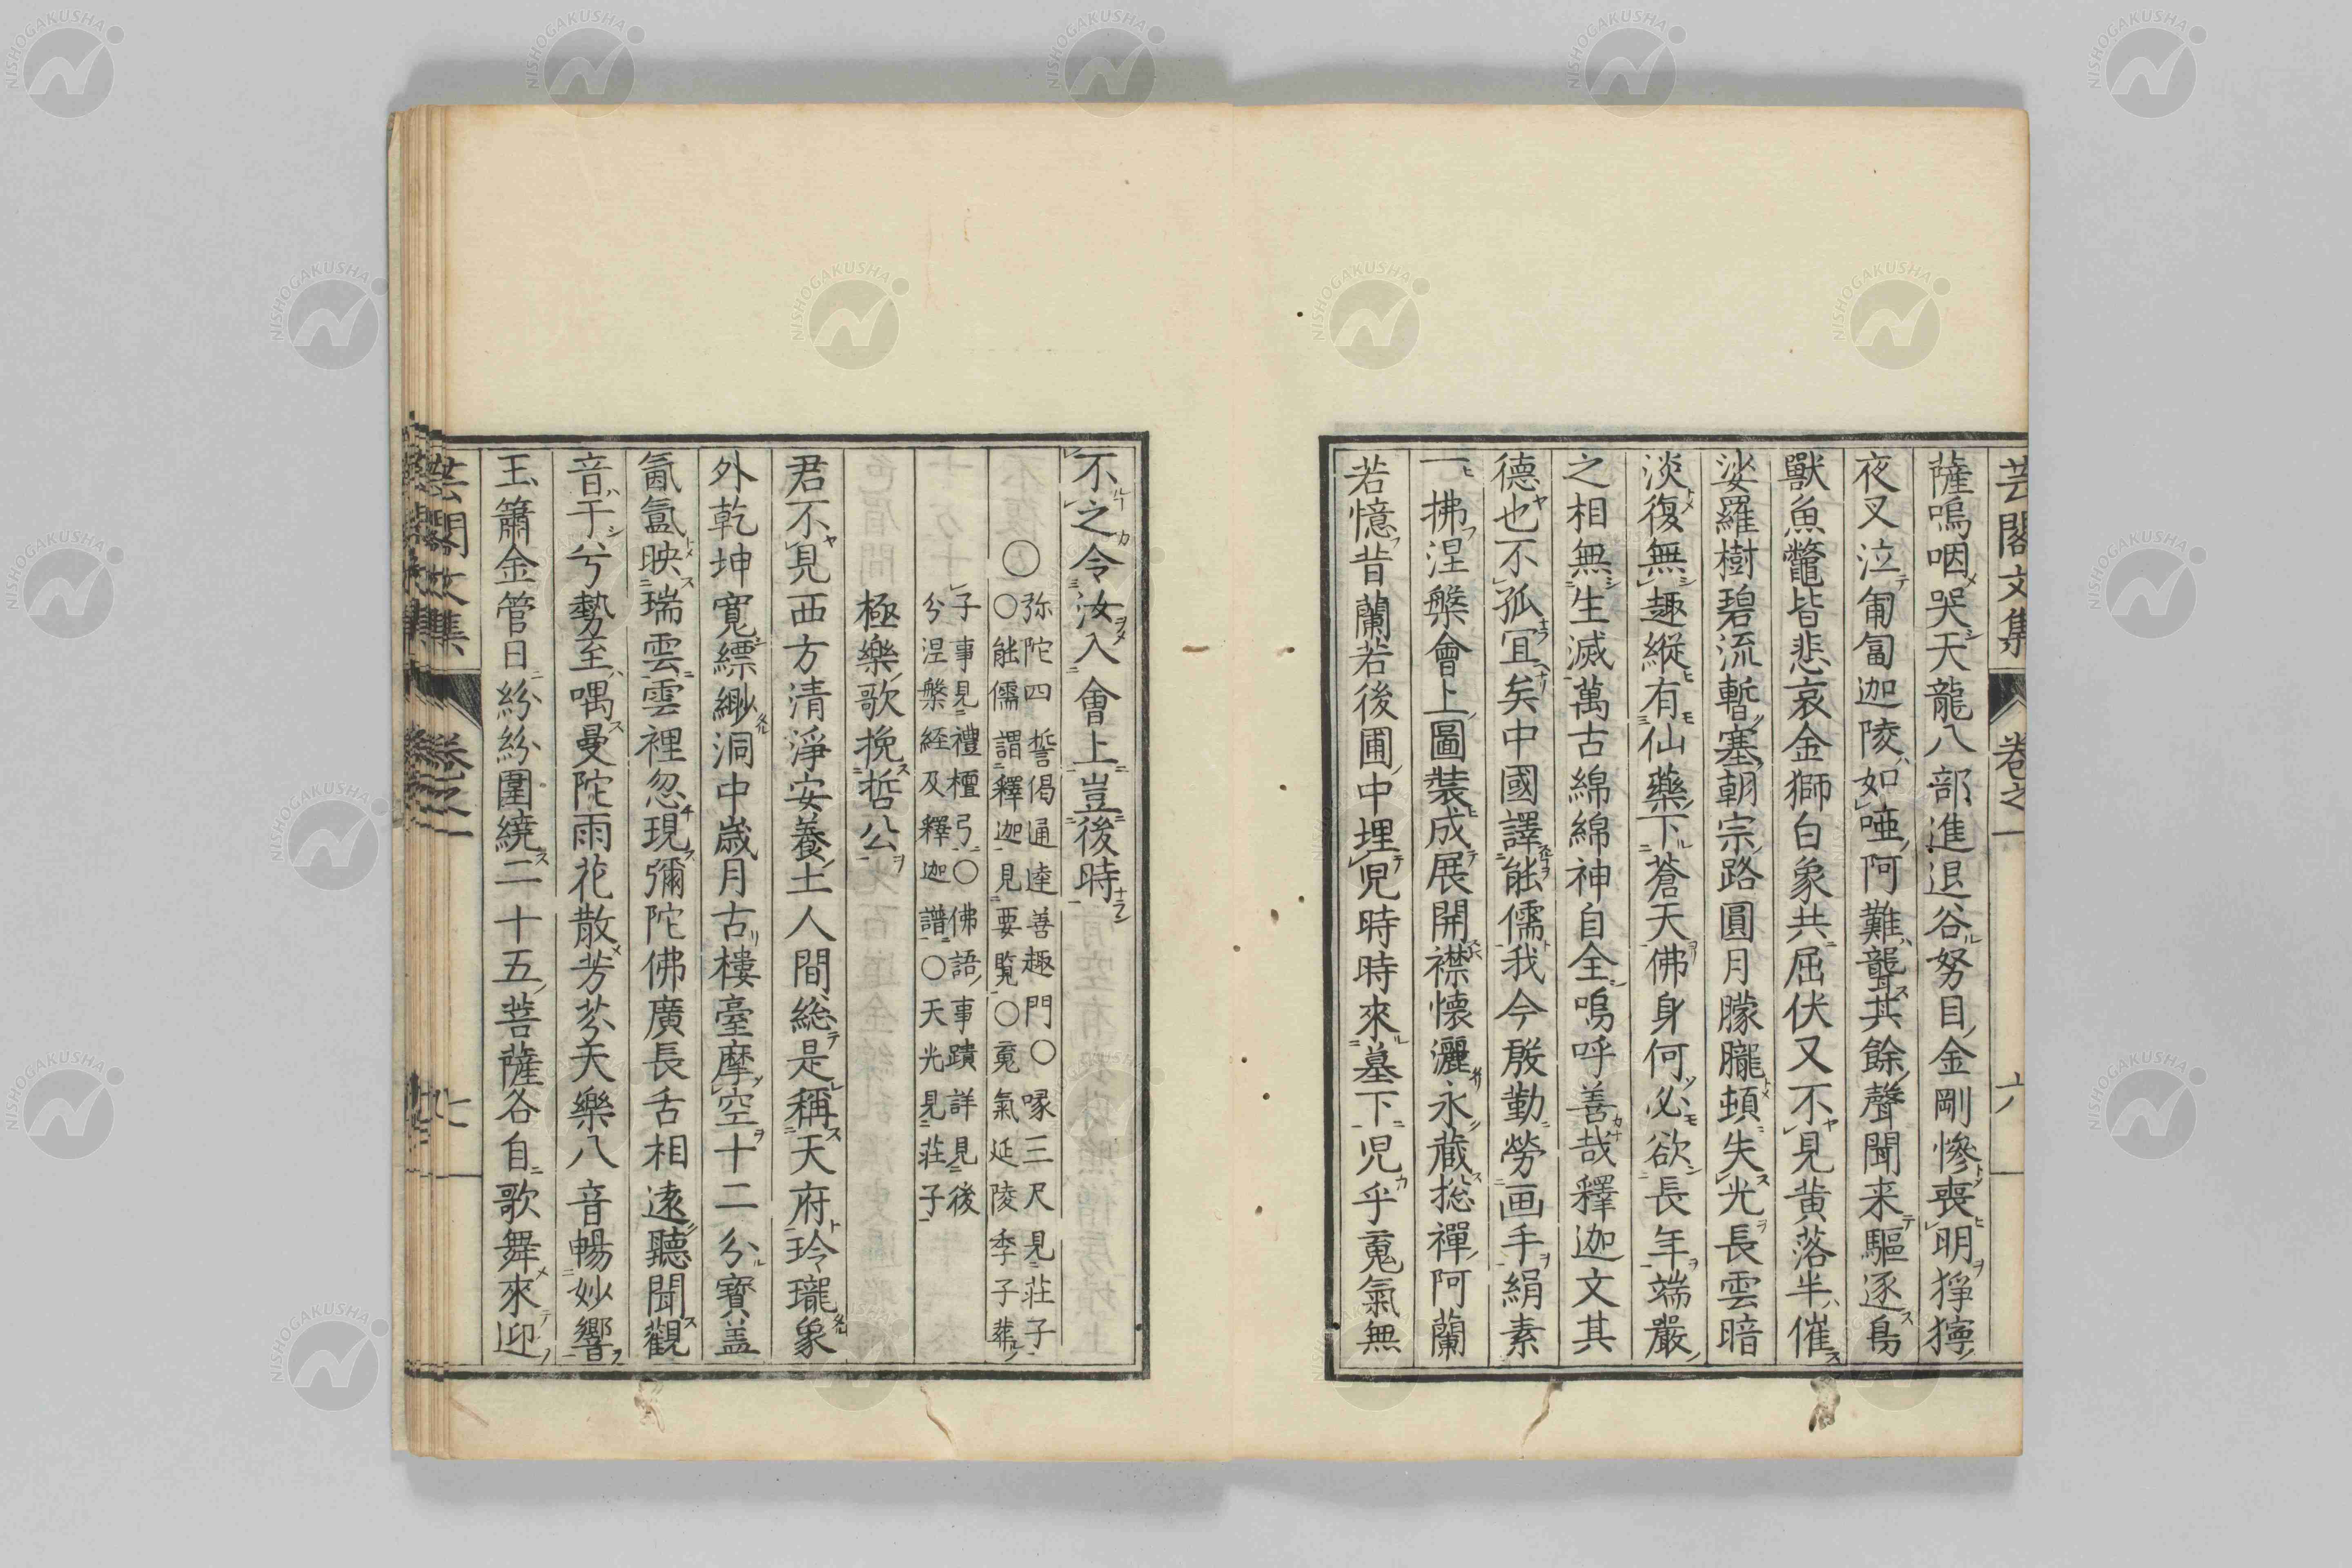 芸閣文集 卷之一 六
薩嗚咽哭天龍八部進退谷努目金剛慘喪明猙獰
夜叉泣匍匐迦陵如啞阿難聾其餘聲聞来驅逐鳥
獸魚鼈皆悲哀金獅白象共屈伏又不見黄落半催
娑羅樹碧流暫塞朝宗路圓月朦朧頓失光長雲暗
淡復無趣縱有仙藥下蒼天佛身何必欲長年端嚴
之相無生滅萬古綿綿神自全嗚呼善哉釋迦文其
德也不孤宜矣中國譯能儒我今殷勤勞画手絹素
一拂涅槃會上圖裝成展開襟懐灑永蔵捴禪阿蘭
若憶昔蘭若後圃中埋兒時時來墓下児乎䰟氣無
不之令汝入會上豈後時
○弥陀四誓偈通達善趣門○喙三尺見莊子
○能儒謂釋迦見要覧○䰟氣延陵季子葬
子事見禮檀弓○佛語事蹟詳見後
分涅槃経及釋迦譜○天光見莊子
極樂歌挽哲公
君不見西方清淨安養土人間総是稱天府玲瓏象
外乾坤寛縹緲洞中歳月古樓臺摩空十二分寶盖
氤氳映瑞雲雲裡忽現彌陀佛廣長舌相遠聽聞觀
音于兮勢至喁曼陀雨花散芳芬天樂八音暢妙響
玉簫金管日紛紛圍繞二十五菩薩各自歌舞來迎
芸閣文集 卷之一 七